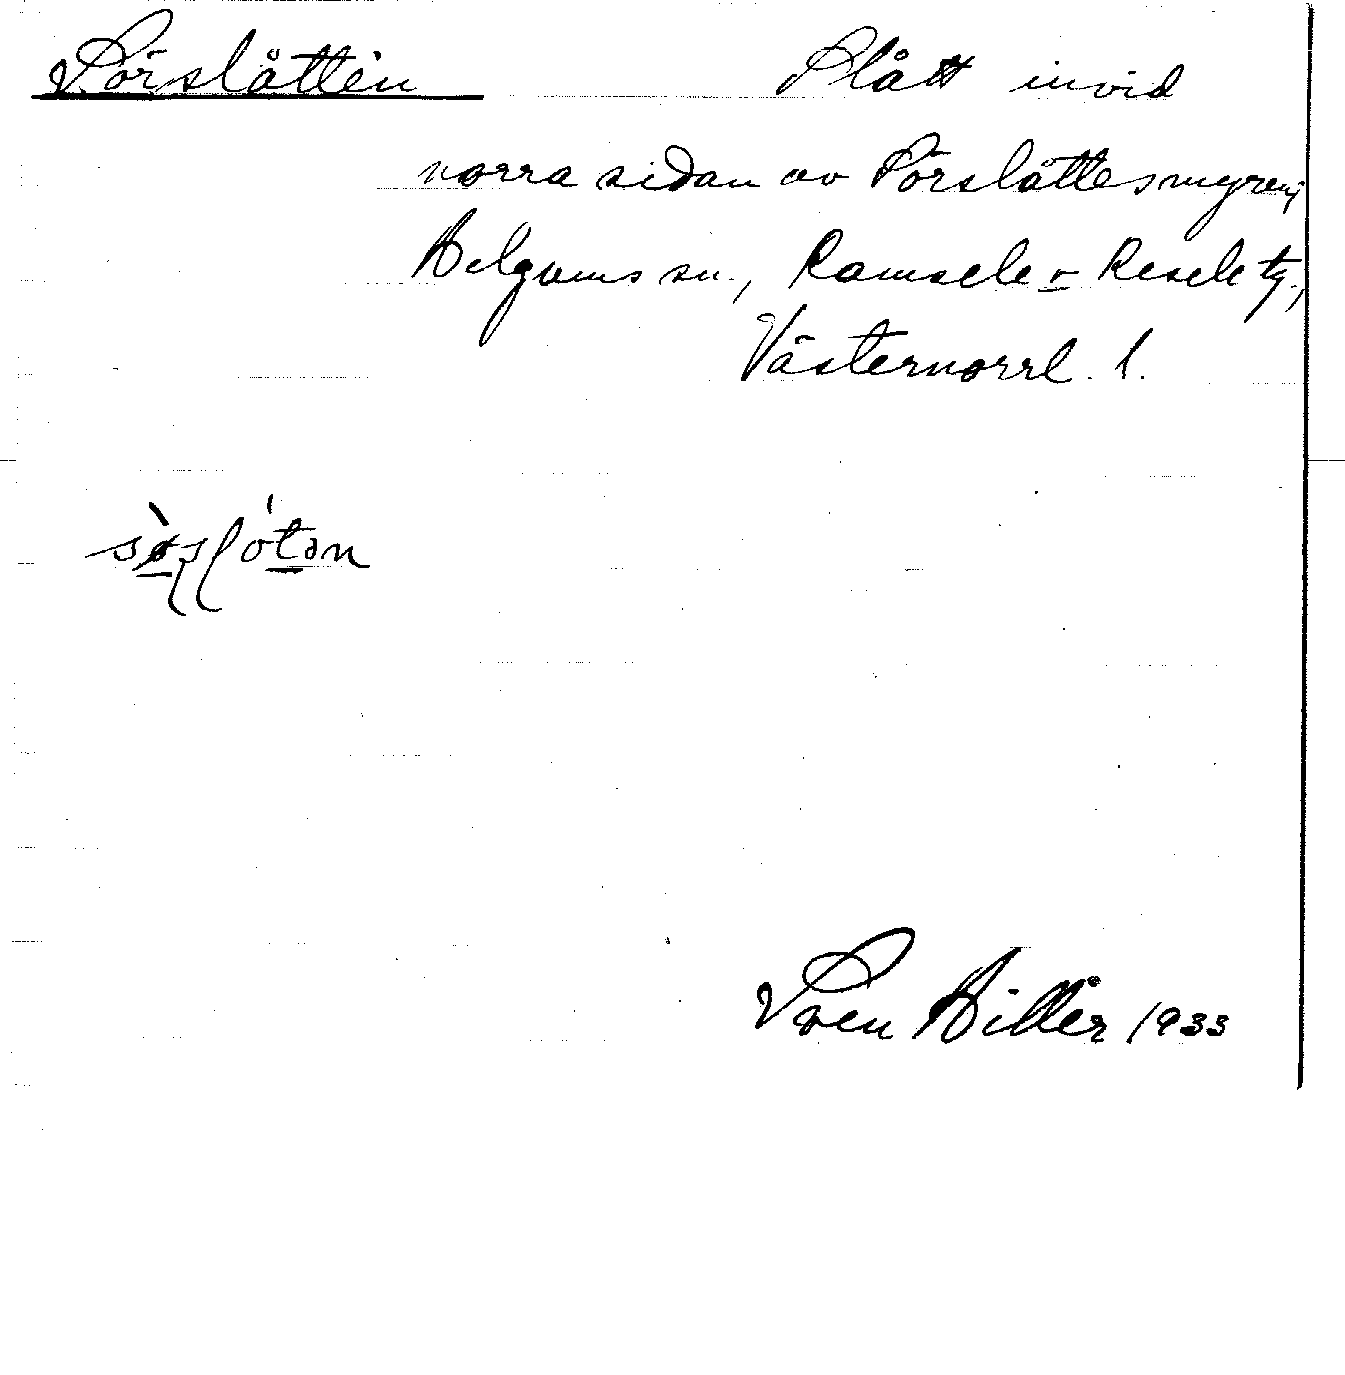 Sörslåtten Slått invid
norra sidan av Sörslåttesmyren,
Helgums sn., Ramsele o Resele tg.,
Västernorrl. l.
Sven Hillér 1933